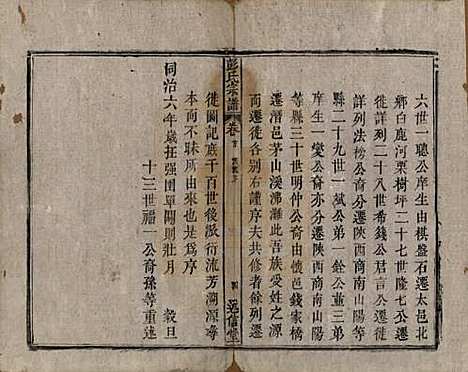 六世一聰公庠生由棋盤石遷太邑北
鄉白鹿河栗樹坪二十七世隆七公遷
徙詳列二十八世希錢公君言公遷徙
詳列法榜公裔分遷陝西商南山陽
縣二十九世一斌公弟一銓公董三弟
庠生一變公裔亦分遷陝西商南山陽
等縣三十世明仲公裔由懷邑錢家橋
遷潛邑茅山溪沸灘此吾族受姓之源
而遷徙各別右謹序夫共修者餘列遷
彭氏宗譜 卷首
四 述信堂
徙圖記底千百世後溦衍流芳溯源尋
本而不昧所由來也是為序
同治六年歲在強圉單閼則壯月 穀旦
十三世福一公裔孫等重述